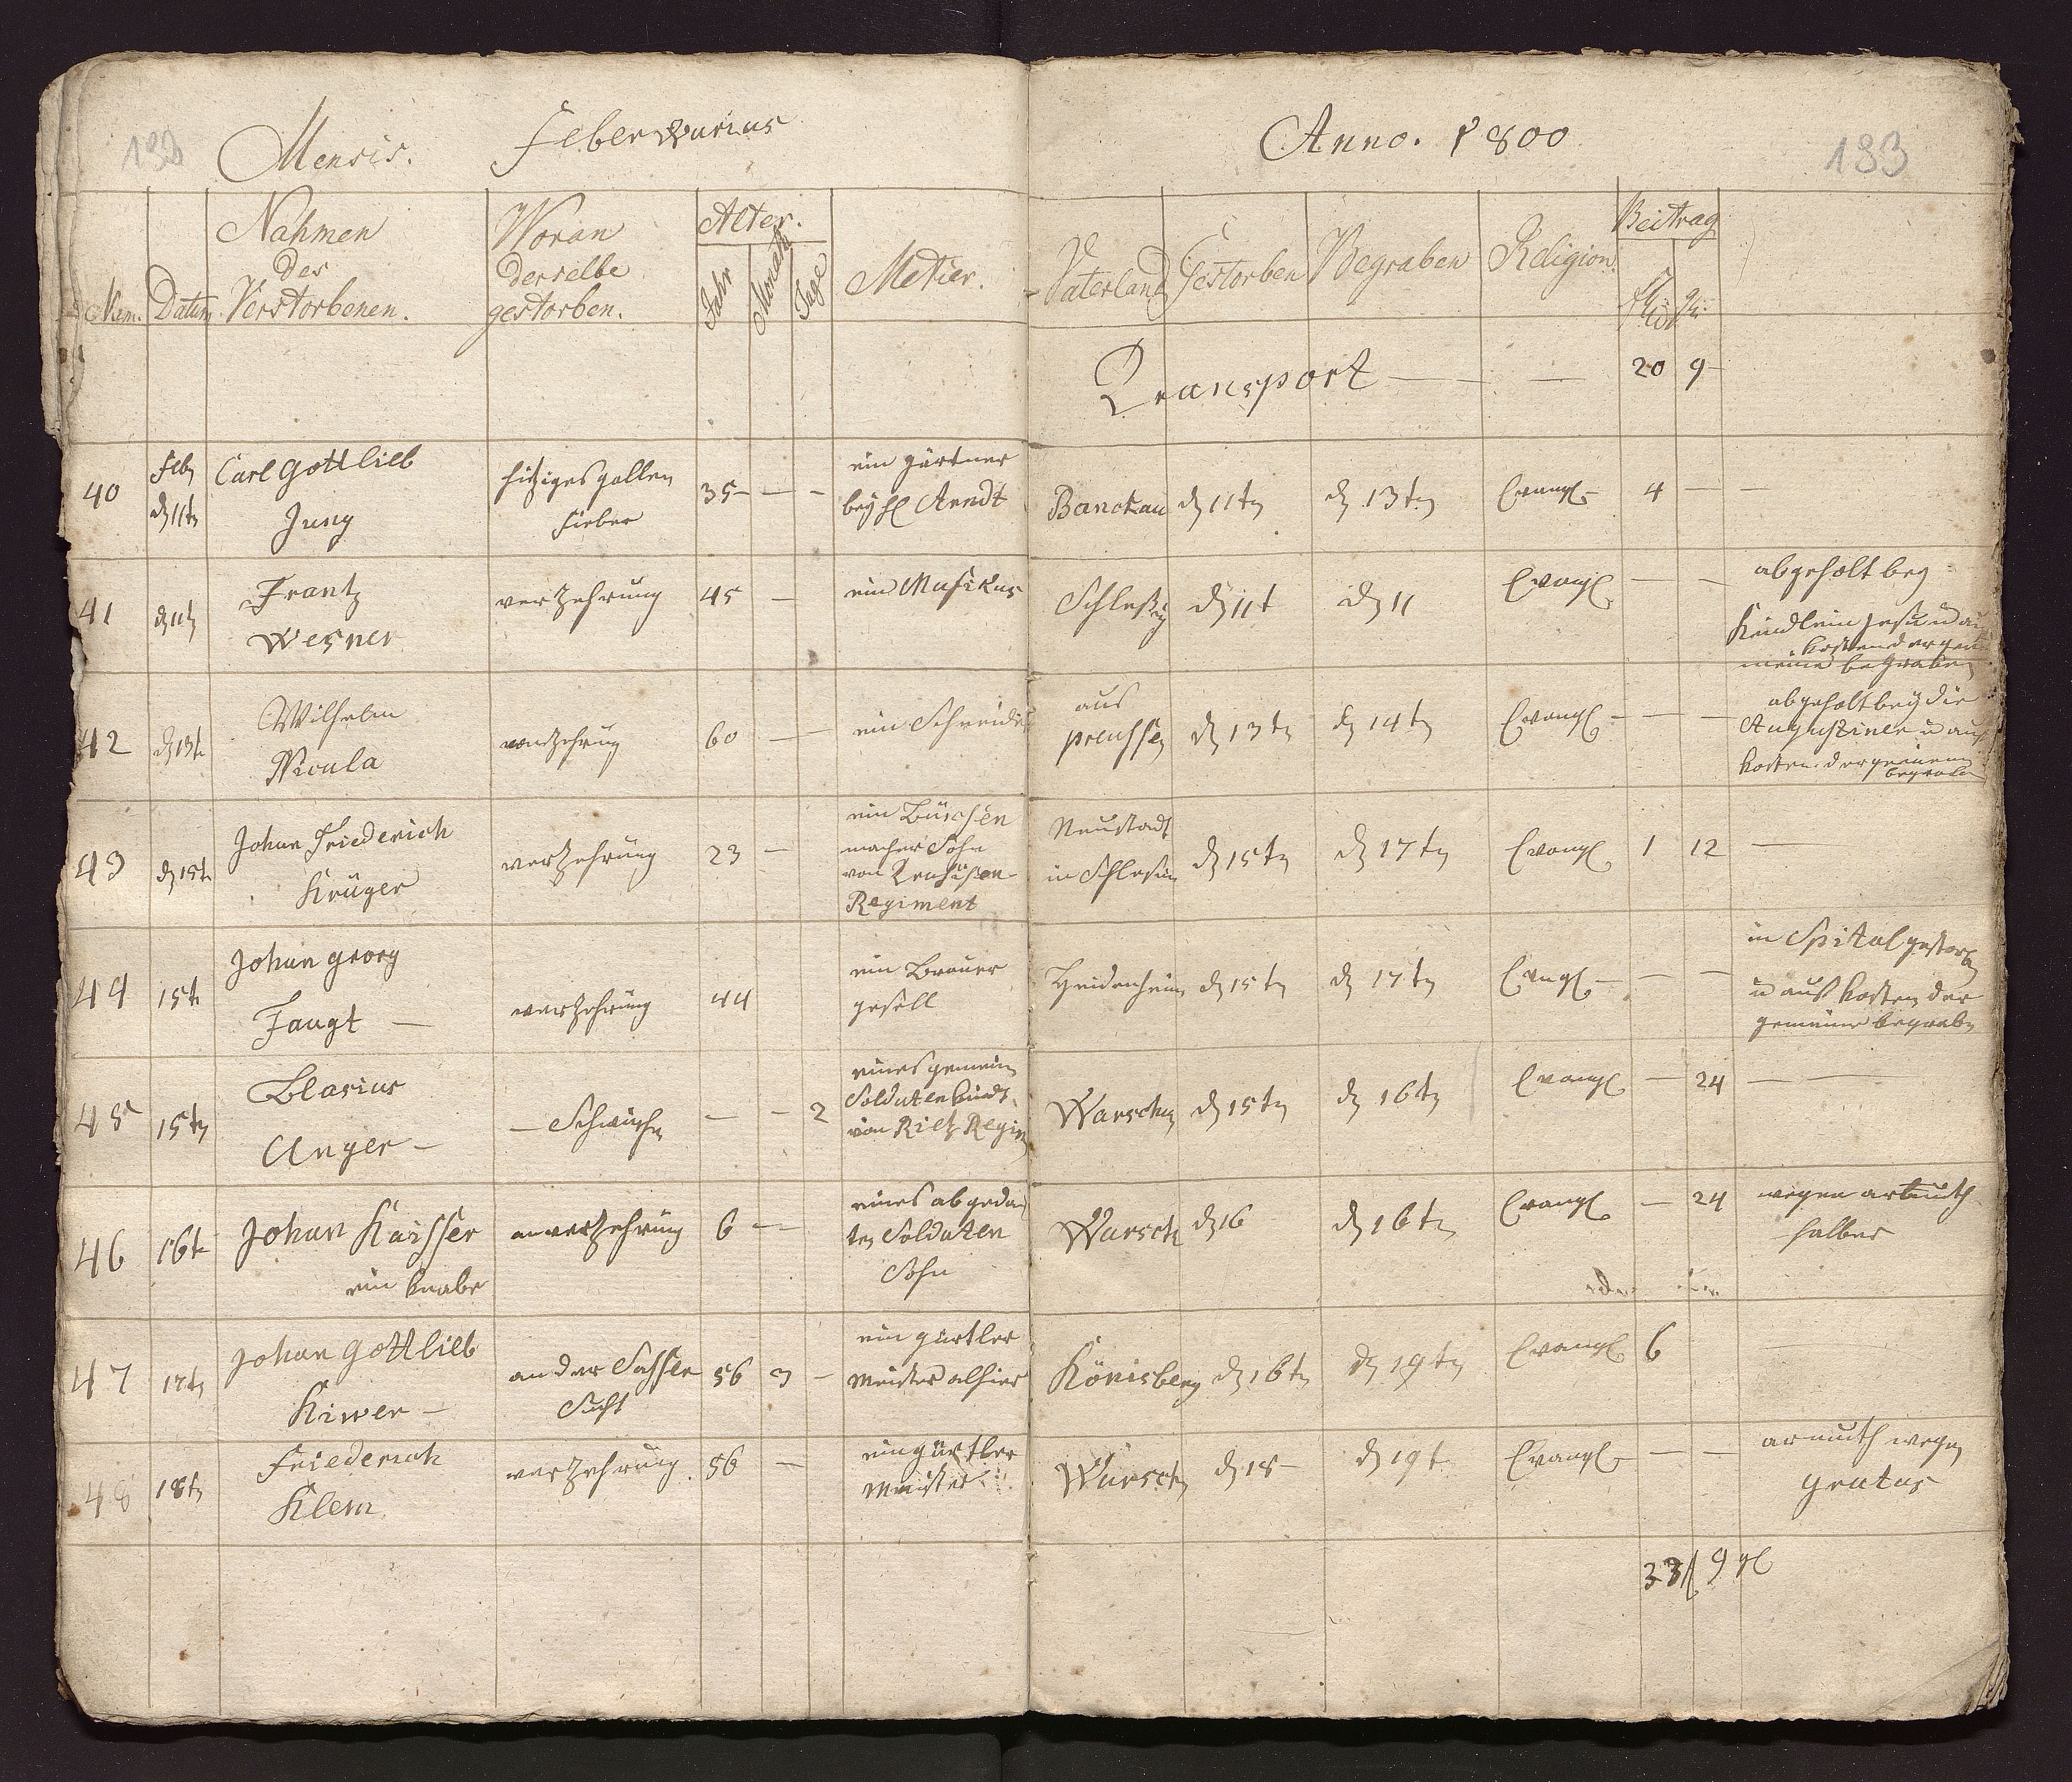 182 Mensis. Feberwarius
Anno. 1800 183
Num. Datum Nahmen des Verstorbenen. Woran derselbe gestorben. Alter. Jahr Monath Tage Metier.
Vaterland Gestorben Begraben Religion. Beitrag
Transport — — — 20 9
40 Feb d 11t Carl Gottlieb Jung hitziges gallen fieber 35 — — ein gärtner bey H Arndt
Banckau d 11t d 13t Evangl 4 — —
41 d 11t Frantz Wesner verzehrung 45 — ein Musikus
Schlesig d 11t d 11 Evangl — — abgeholt bey
Kindlein Jesu u auf
kosten der gemeine begraben
42 d 13t Wilhelm Nicula verzehrung 60 — ein Schneider
aus preussen d 13t d 14t Evangl — — abgeholt bey die
Augustiner u auf
kosten der gemeine
begraben
43 d 15t Johan Friederich Krüger verzehrung 23 — ein Büchsen
macher Sohn
von
Regiment
Neustadt in Schlesien d 15t d 17t Evangl 1 12 —
44 15t Johan georg Faugt — verzehrung 44 ein Brauer
gesell
Heidenheim d 15t d 17t Evangl — — in Spital gestorben
u auf kosten der
gemeine begraben
45 15t Blasius Unger — Schwäche — — 2 eines gemein
Soldaten kindt
von Rietz Regim
Warschau d 15t d 16t Evangl — 24 —
46 16t Johan Kaisser ein knabe an verzehrung 6 — eines abgeda
ten Soldaten
Sohn
Warsch d 16 d 16t Evangl — 24 wegen armuth
halber
47 17t Johan Gottlieb Kiwer — an der Sucht 56 3 — ein gürtler
meister alhier
Könisberg d 16t d 19t Evangl 6
48 18t Friederich Klem verzehrung 56 — ein gürtler
meister
Warsch d 18 d 19t Evangl — — armuth wegen
gratus
33 f 9 gl